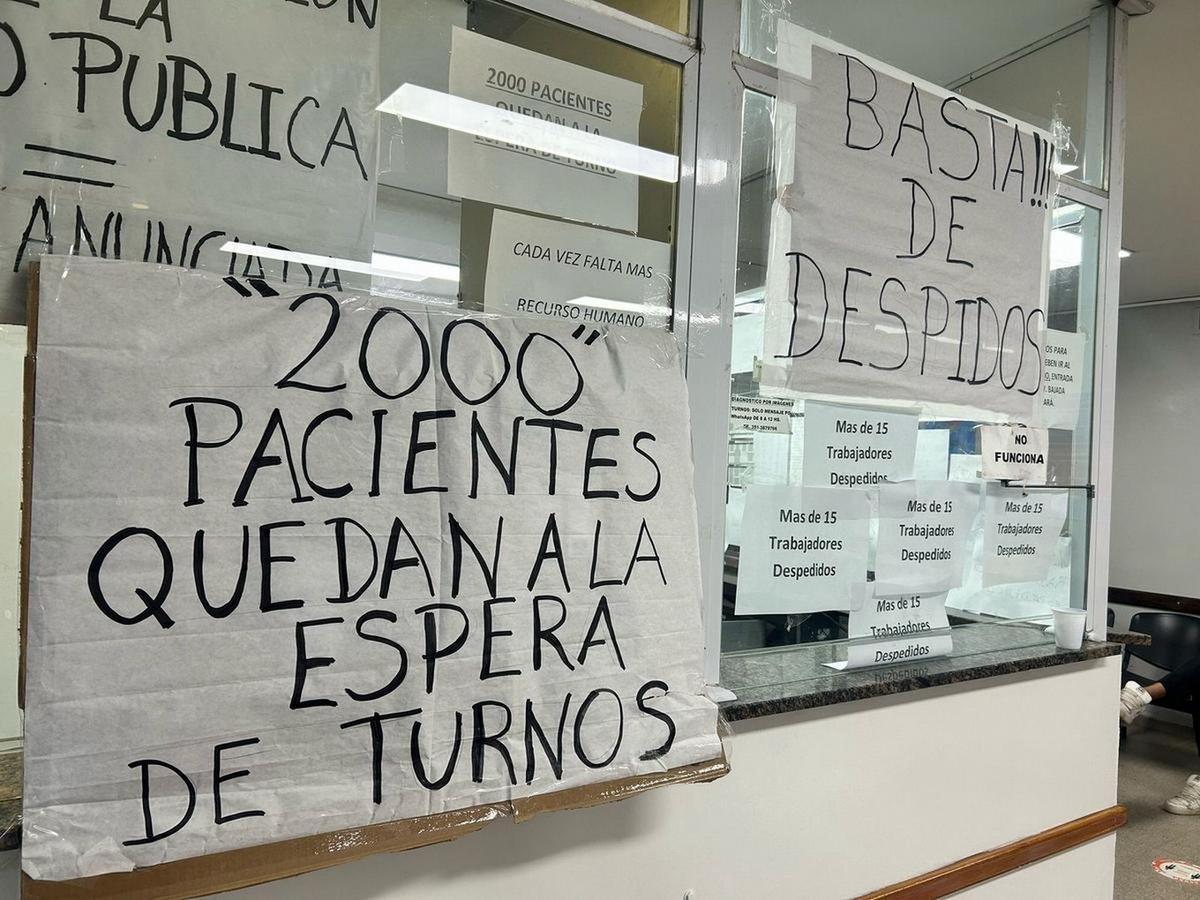 LA
PUBLICA
ANUNCIADA
2000 PACIENTES
QUEDAN A LA
ESPERA DE TURNO
CADA VEZ FALTA MAS
RECURSO HUMANO
"2000"
PACIENTES
QUEDAN A LA
ESPERA
DE TURNOS
BASTA!!!
DE
DESPIDOS
OS PARA
EBEN IR AL
O, ENTRADA
Y. BAJADA
ARÁ.
DIAGNOSTICO POR IMÁGENES
TURNOS: SOLO MENSAJE PO
WhatsApp DE 8 A 12 HS.
NO
FUNCIONA
Mas de 15
Trabajadores
Despedidos
Mas de 15
Trabajadores
Despedidos
Mas de 15
Trabajadores
Despedidos
Mas de 15
Trabajadores
Despedidos
Mas de 15
Trabajadores
Despedidos